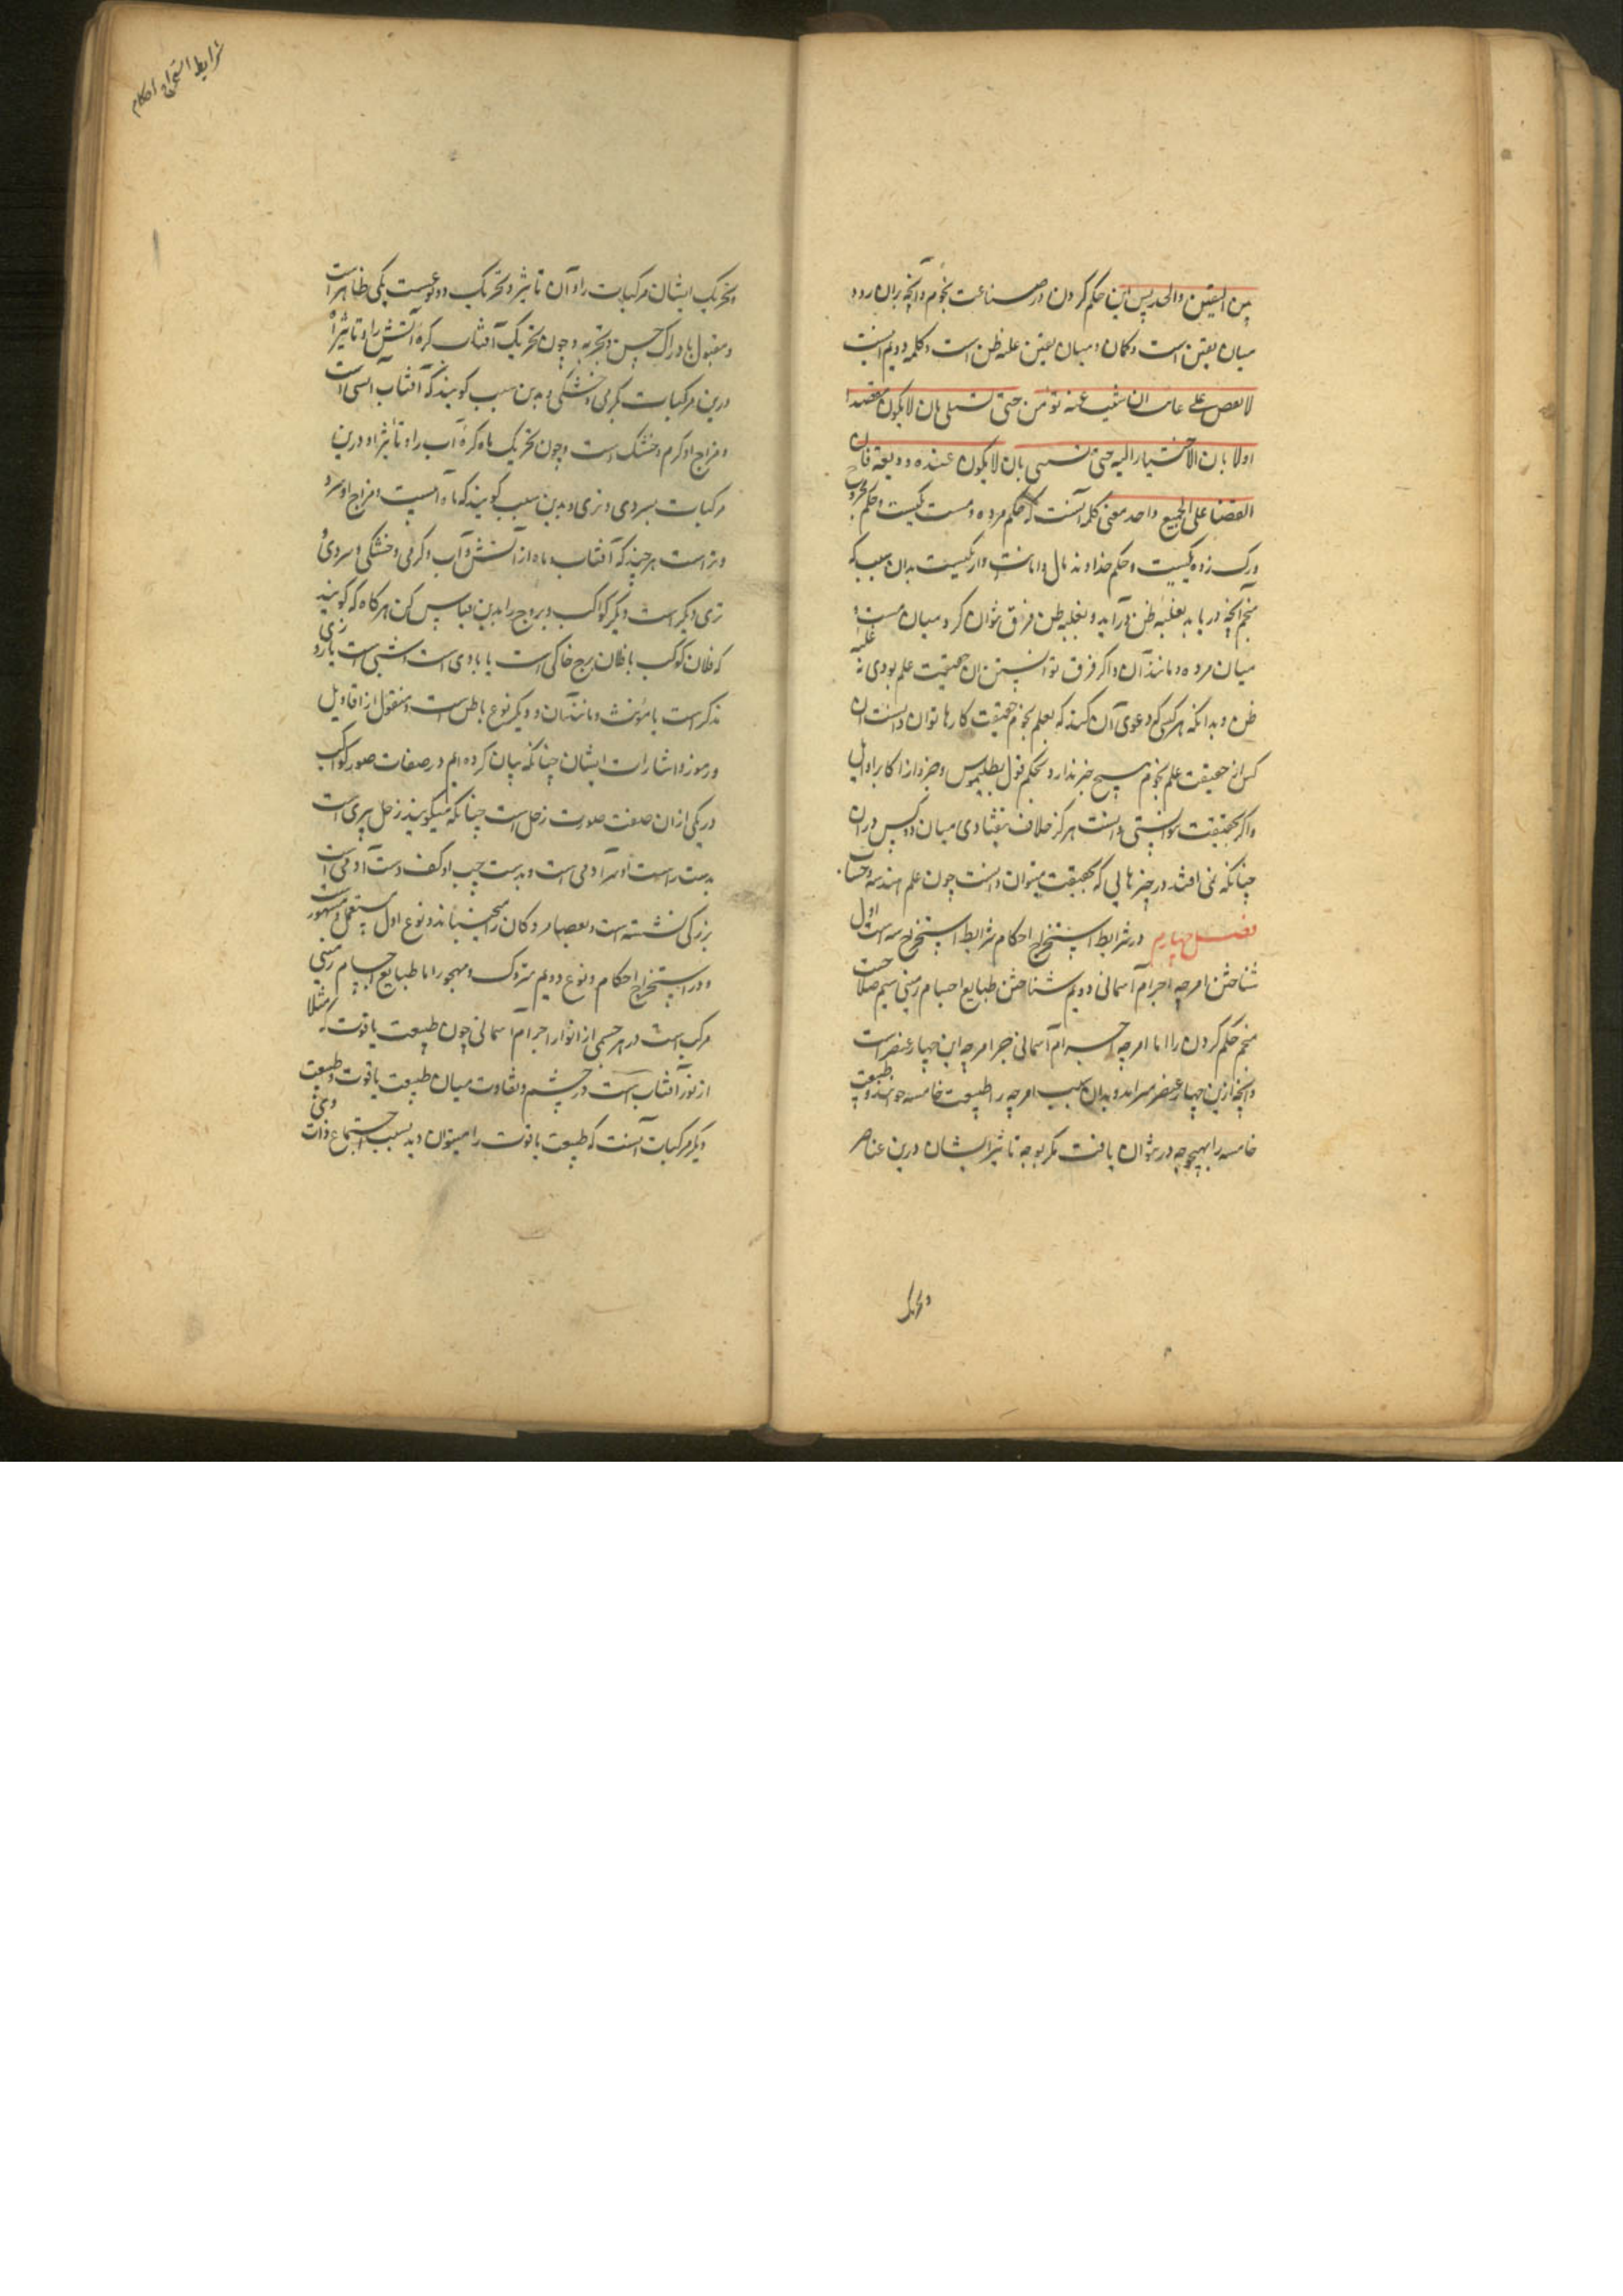 بین الیقین والحدس این حکم کردن در صناعت نجوم وآنچه بران رود
میان یقین است وکمان ومیان یقین غلبه ظن است وکلمه دویم اینست
حتی بان لایکون
اولا بان الاختیار الیه حتی بان لایکون عنده ودیعة فان
القضا علی الجمیع واحد معنی کلمه آنست که حکم مرده ومست یکیست وحکم
ورک زده یکیست وحکم خداوند مال وامانت دار یکیست بدان سبب که
منجم آنچه دریابد بغلبه ظن درآید وبغلبه ظن فرق نتوان کرد میان مست و
میان مرده ومانند آن واکر فرق توانستن ان حقیقت علم بودی نه غلبه
ظن وبدانکه هر کس که دعوی آن کند که بعلم نجوم حقیقت کارها توان دانست آن
کس از حقیقت علم نجوم هیچ خبر ندارد وبحکم قول بطلیموس وجز او از اکابر اوایل
واکر بحقیقت توانستی دانست هرکز خلاف نیفتادی میان دو کس دران
چنانکه نمی افتد در چیزهایی که بحقیقت میتوان دانست چون علم هندسه وحساب
فصل چهارم در شرایط استخراج احکام شرایط استخراج سه است اول
شناختن امزجه اجرام آسمانی دویم شناختن طبایع اجسام زمینی سیم صلاحیت
منجم حکم کردن را اما امزجه اجرام آسمانی جز امزجه این چهار عنصر است
وآنچه ازین چهار عنصر سراید وبدان سبب امزجه را طبیعت خامسه خوانند وطبیعت
خامسه را بهیچوجه در نتوان یافت مکر بوجه تاثیر ایشان درین عناصر
وتحریک
شرایط استخراج احکام
وتحریک ایشان مرکبات را وآن تاثیر وتحریک دو نوعست یکی ظاهر است
ومقبول بادراک حس وتجربه وچون تحریک آفتاب کره آتش را وتاثیر او
درین مرکبات بکرمی وخشکی وبدین سبب کویند که آفتاب آتشی است
ومزاج او کرم وخشک است وچون تحریک ماه کره آب را وتاثیر او درین
مرکبات بسردی وتری وبدین سبب کویند که ماه آبیست ومزاج او سرد
وتر است هرچند که آفتاب وماه از آتش وآب وکرمی وخشکی وسردی و
تری دیکر است ودیکر کواکب وبروج را بدین قیاس کن هرکاه که کویند
که فلان کوکب یا فلان برج خاکی است یا بادی است وشبی است یا روزی
مذکر است یا مؤنث ومانند آن ودیکر نوع باطن است ومنقول از اقاویل
ورموز واشارات ایشان چنانکه بیان کرده ایم در صفات صور کواکب
در یکی ازان صفت صورت زحل است چنانکه میکویند زحل پیری است
بدست راست او سر آدمی است وبدست چپ او کف دست آدمی است
بر کرکی نشسته است وبعصا مردکان را میجنباند ونوع اول مستعمل ومشهور است
ودر استخراج احکام ونوع دویم متروک ومهجور اما طبایع اجسام زمینی
مرکب است در هر جسمی از انوار اجرام آسمانی چون طبیعت یاقوت که مثلا
از نور آفتاب است در چشم وتفاوت میان طبیعت یاقوت وطبیعت
دیکر مرکبات آنست که طبیعت یاقوت را میتوان دید بسبب اجتماع ذات